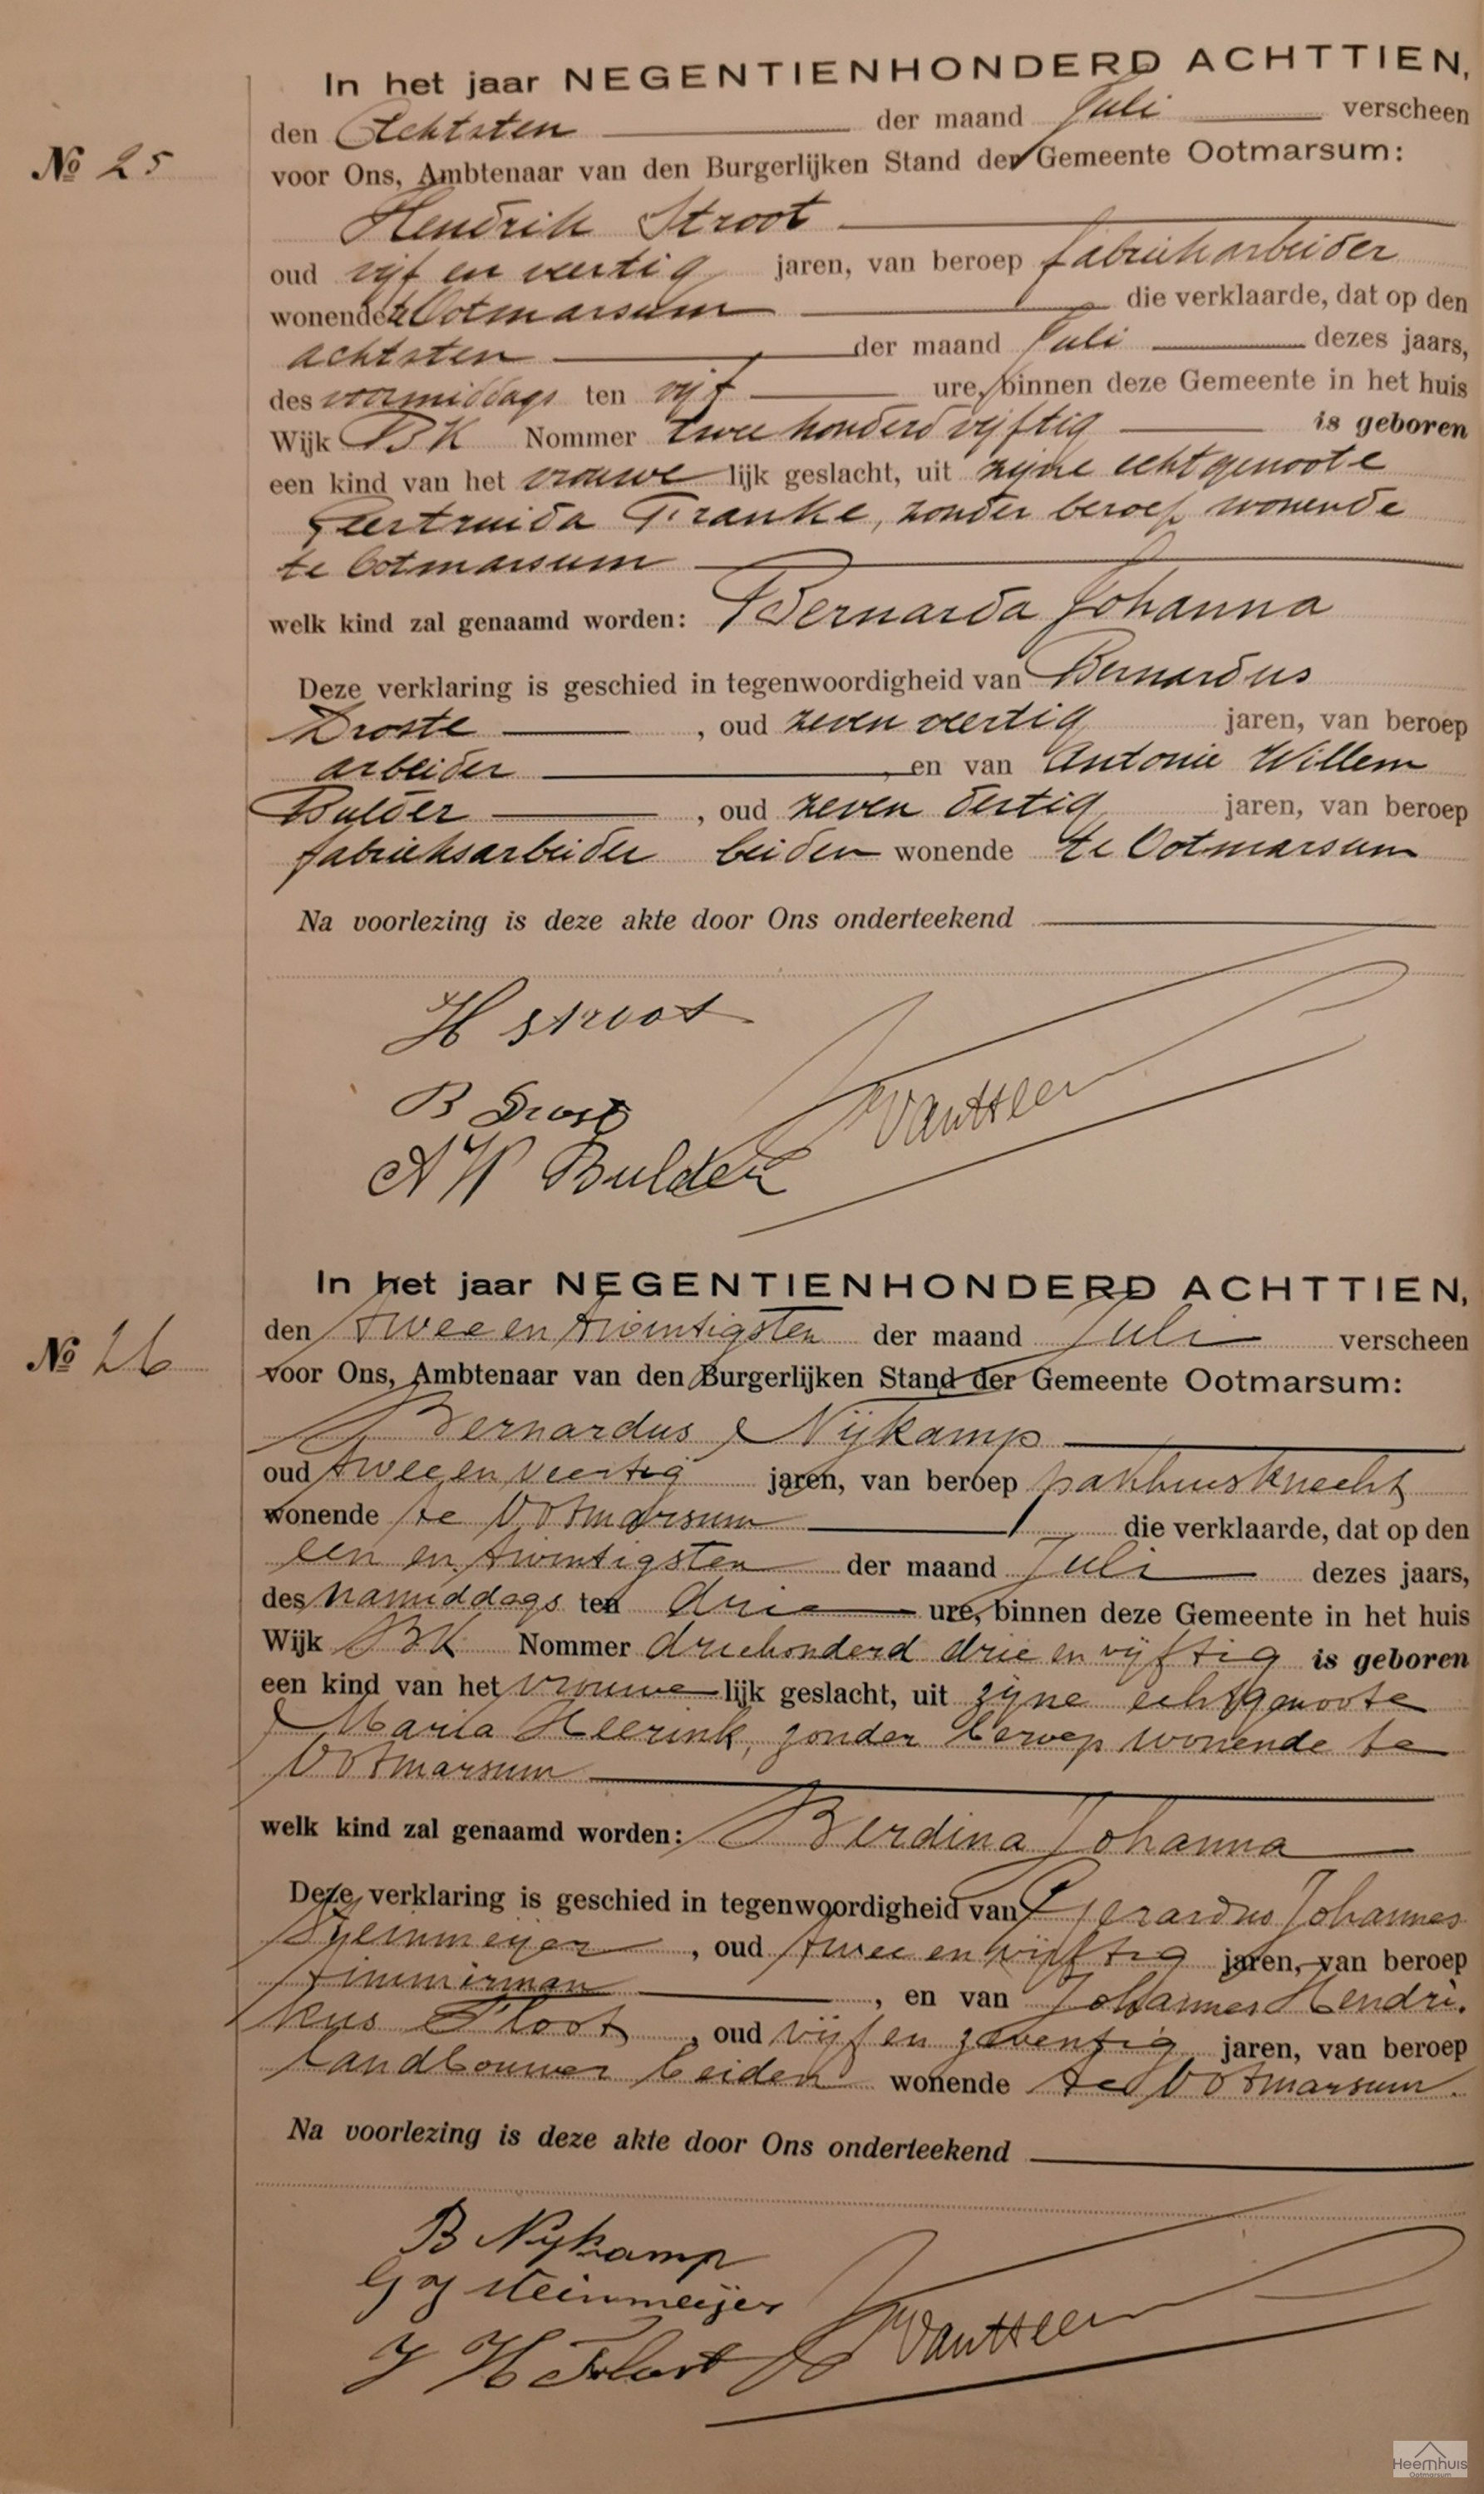 In het jaar NEGENTIENHONDERD ACHTTIEN,
den Achtsten der maand Juli verscheen
No 25
voor Ons, Ambtenaar van den Burgerlijken Stand der Gemeente Ootmarsum:
Hendrik Stroot
oud vijf en veertig jaren, van beroep fabriekarbeider
wonende te Ootmarsum die verklaarde, dat op den
achtsten der maand Juli dezes jaars,
des voormiddags ten vijf ure, binnen deze Gemeente in het huis
Wijk BK Nommer twee honderd vijftig is geboren
een kind van het vrouwe lijk geslacht, uit zijne echtgenoote
Geertruida Franke, zonder beroep wonende
te Ootmarsum
welk kind zal genaamd worden: Bernarda Johanna
Deze verklaring is geschied in tegenwoordigheid van Bernardus
Droste , oud zeven veertig jaren, van beroep
arbeider , en van Antonie Willem
Bulder , oud zeven dertig jaren, van beroep
fabrieksarbeider beiden wonende te Ootmarsum
Na voorlezing is deze akte door Ons onderteekend
H Stroot
B Drost
A W Bulder
In het jaar NEGENTIENHONDERD ACHTTIEN,
den twee en twintigsten der maand Juli verscheen
No 26
voor Ons, Ambtenaar van den Burgerlijken Stand der Gemeente Ootmarsum:
Bernardus Nijkamp
oud twee en veertig jaren, van beroep pakhuisknecht
wonende te Ootmarsum die verklaarde, dat op den
een en twintigsten der maand Juli dezes jaars,
des namiddags ten drie ure, binnen deze Gemeente in het huis
Wijk BK Nommer driehonderd drie en vijftig is geboren
een kind van het vrouwe lijk geslacht, uit zijne echtgenoote
Maria Heerink, zonder beroep wonende te
Ootmarsum
welk kind zal genaamd worden: Berdina Johanna
Deze verklaring is geschied in tegenwoordigheid van Gerardus Johannes
Steinmeijer , oud twee en vijftig jaren, van beroep
timmerman , en van Johannes Hendri-
kus Floot , oud vijf en zeventig jaren, van beroep
landbouwer beiden wonende te Ootmarsum.
Na voorlezing is deze akte door Ons onderteekend
B Nijkamp
G J Steinmeijer
J H Floot
Heemhuis
Ootmarsum